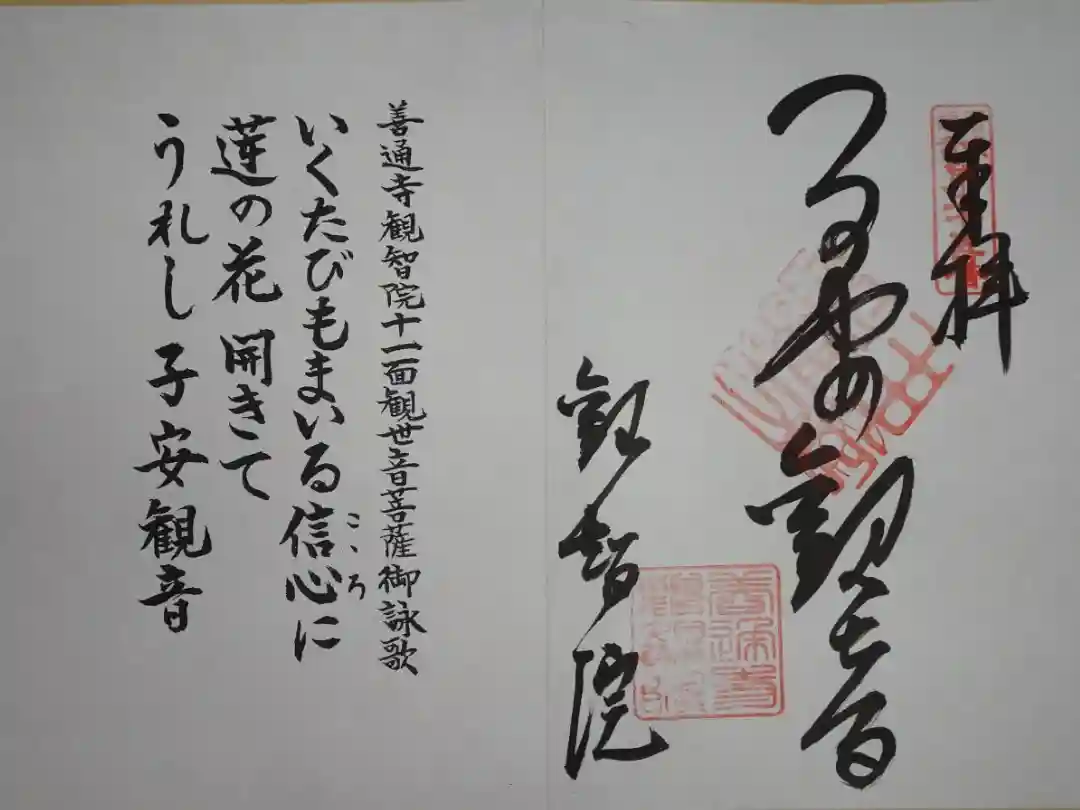 奉拝
觀世音
觀智院
善通寺
善通寺観智院十一面観世音菩薩御詠歌
いくたびもまいる信心に
こゝろ
蓮の花 開きて
うれし 子安観音